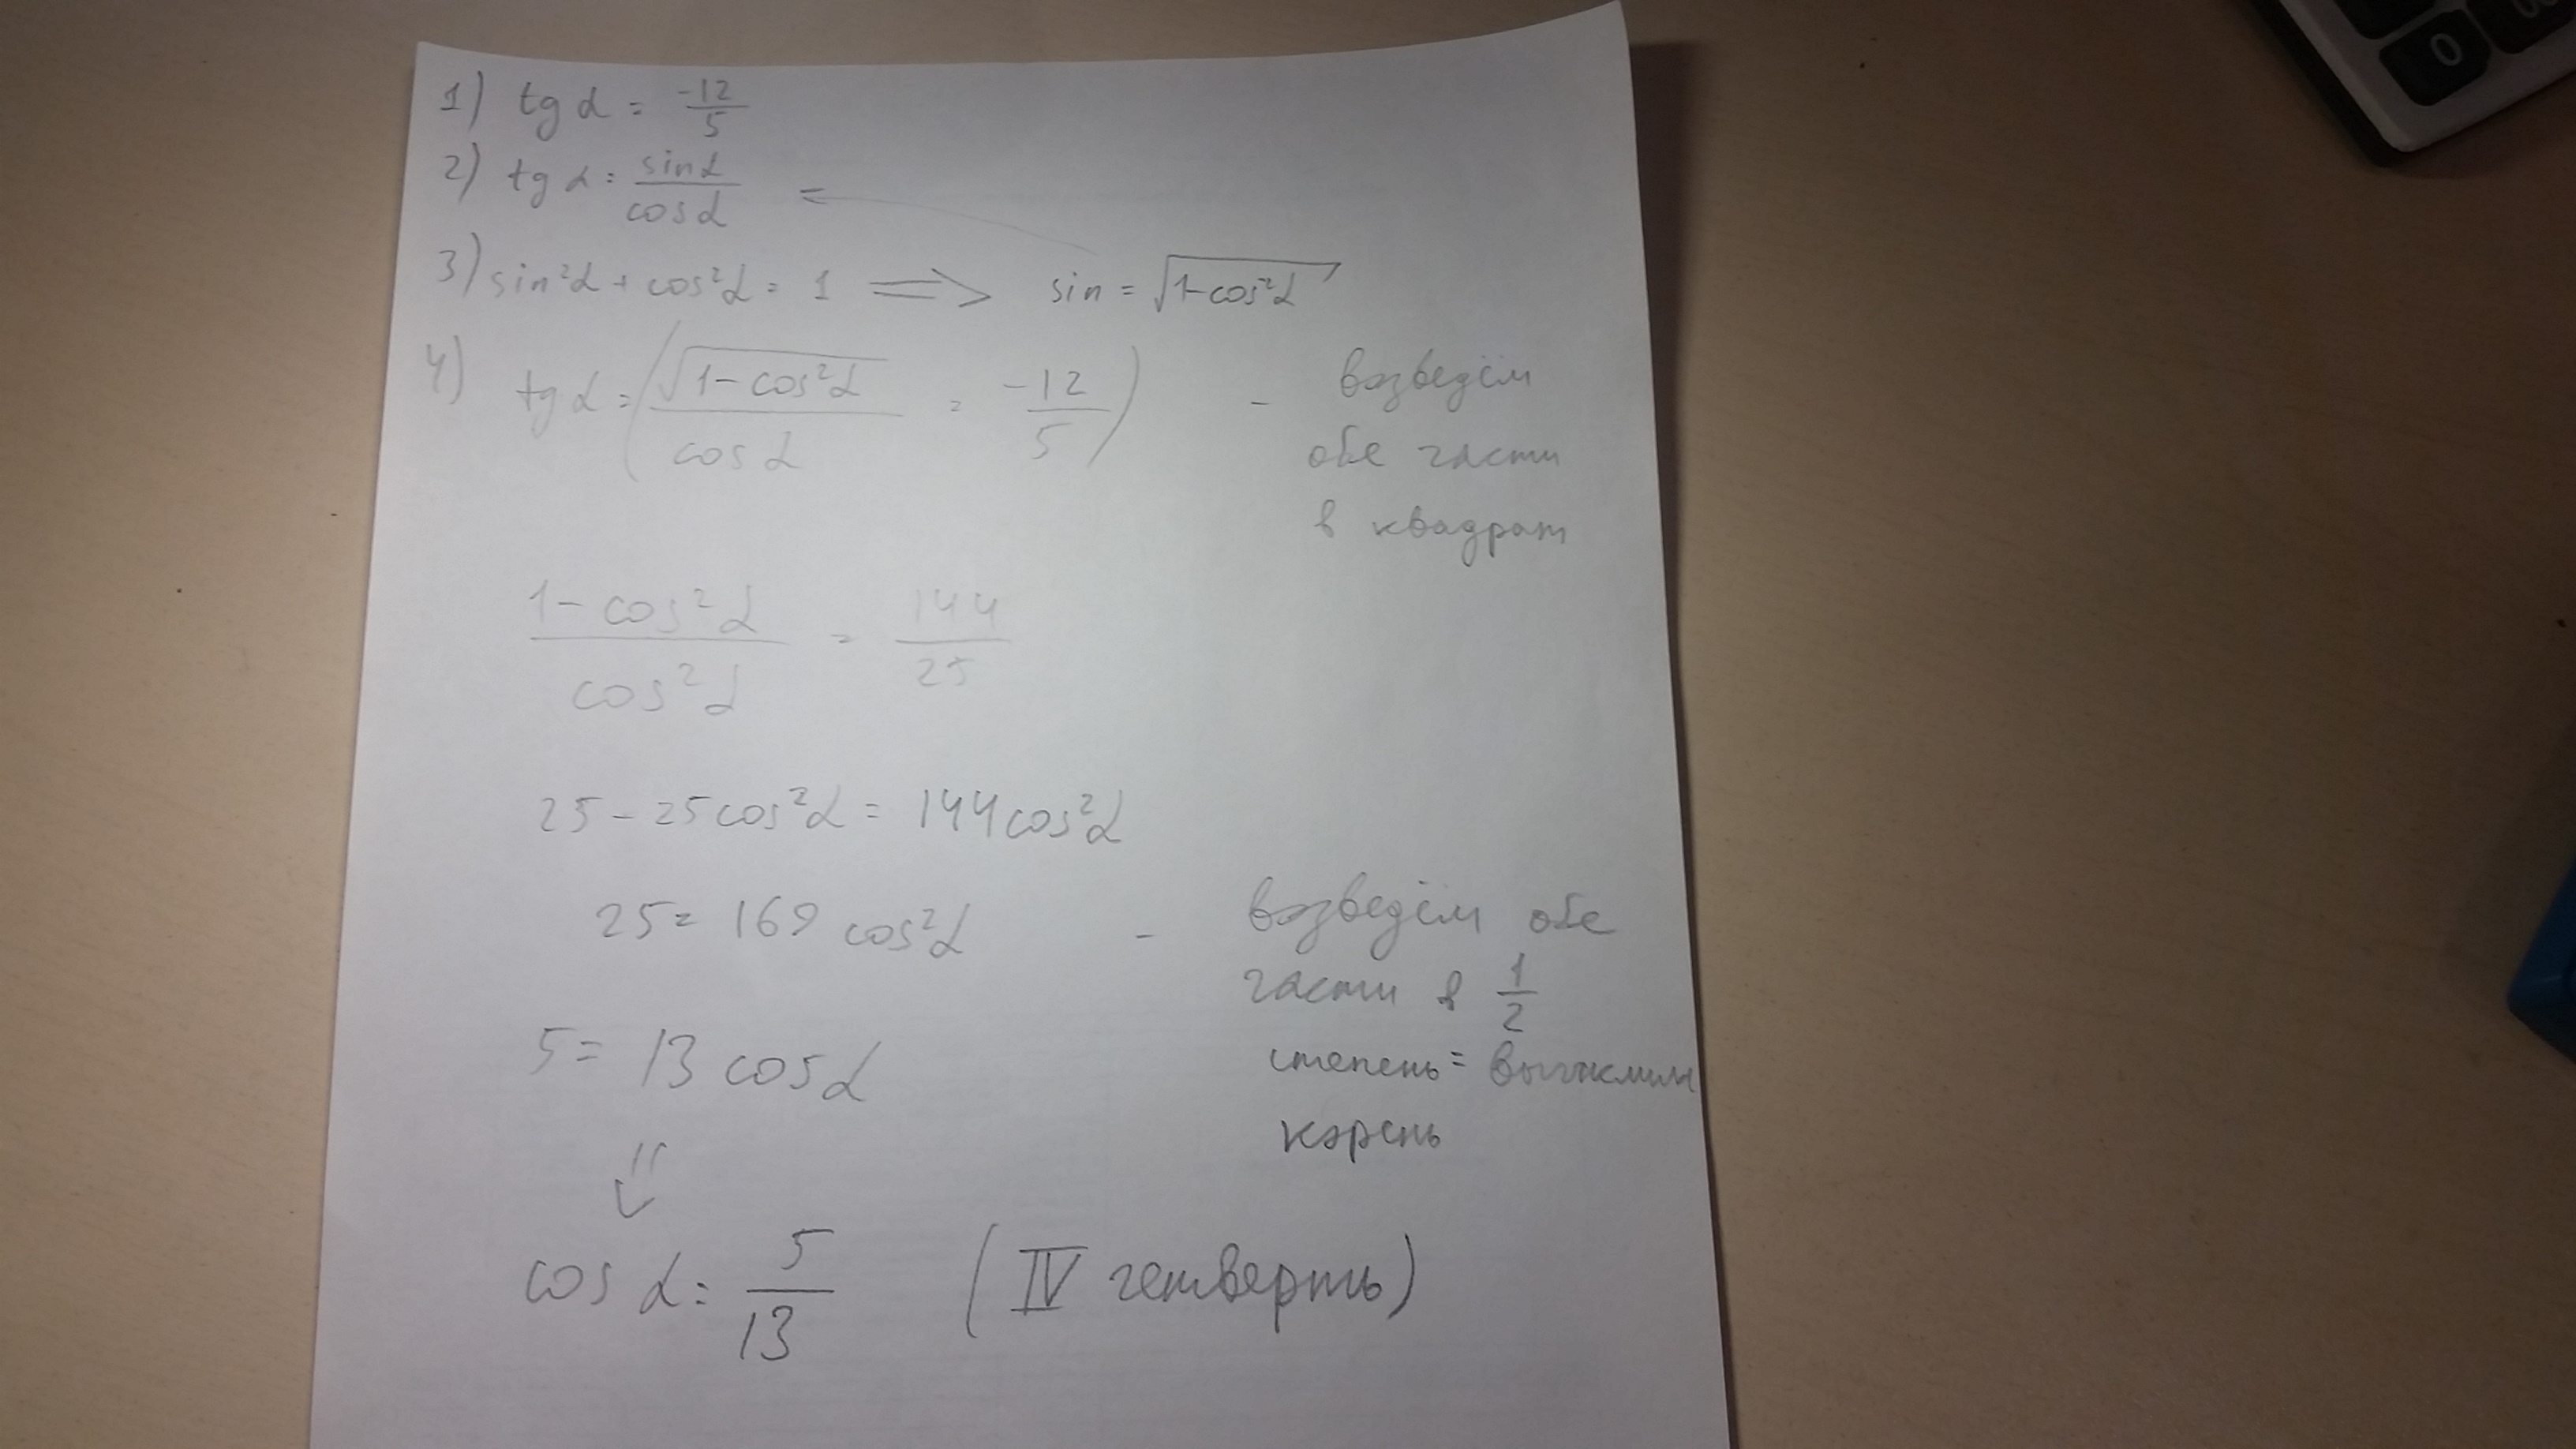 1) tg α = -12/5
2) tg α = sin α/cos α =
3) sin²α + cos²α = 1 => sin = √(1-cos²α)
4) tg α = (√(1-cos²α)/cos α = -12/5) - возведём
обе части
в квадрат
1-cos²α/cos²α = 144/25
25-25cos²α = 144cos²α
25 = 169 cos²α - возведём обе
части в 1/2
степень = вычислим
корень
5 = 13 cos α
cos α = 5/13 (IV четверть)
0